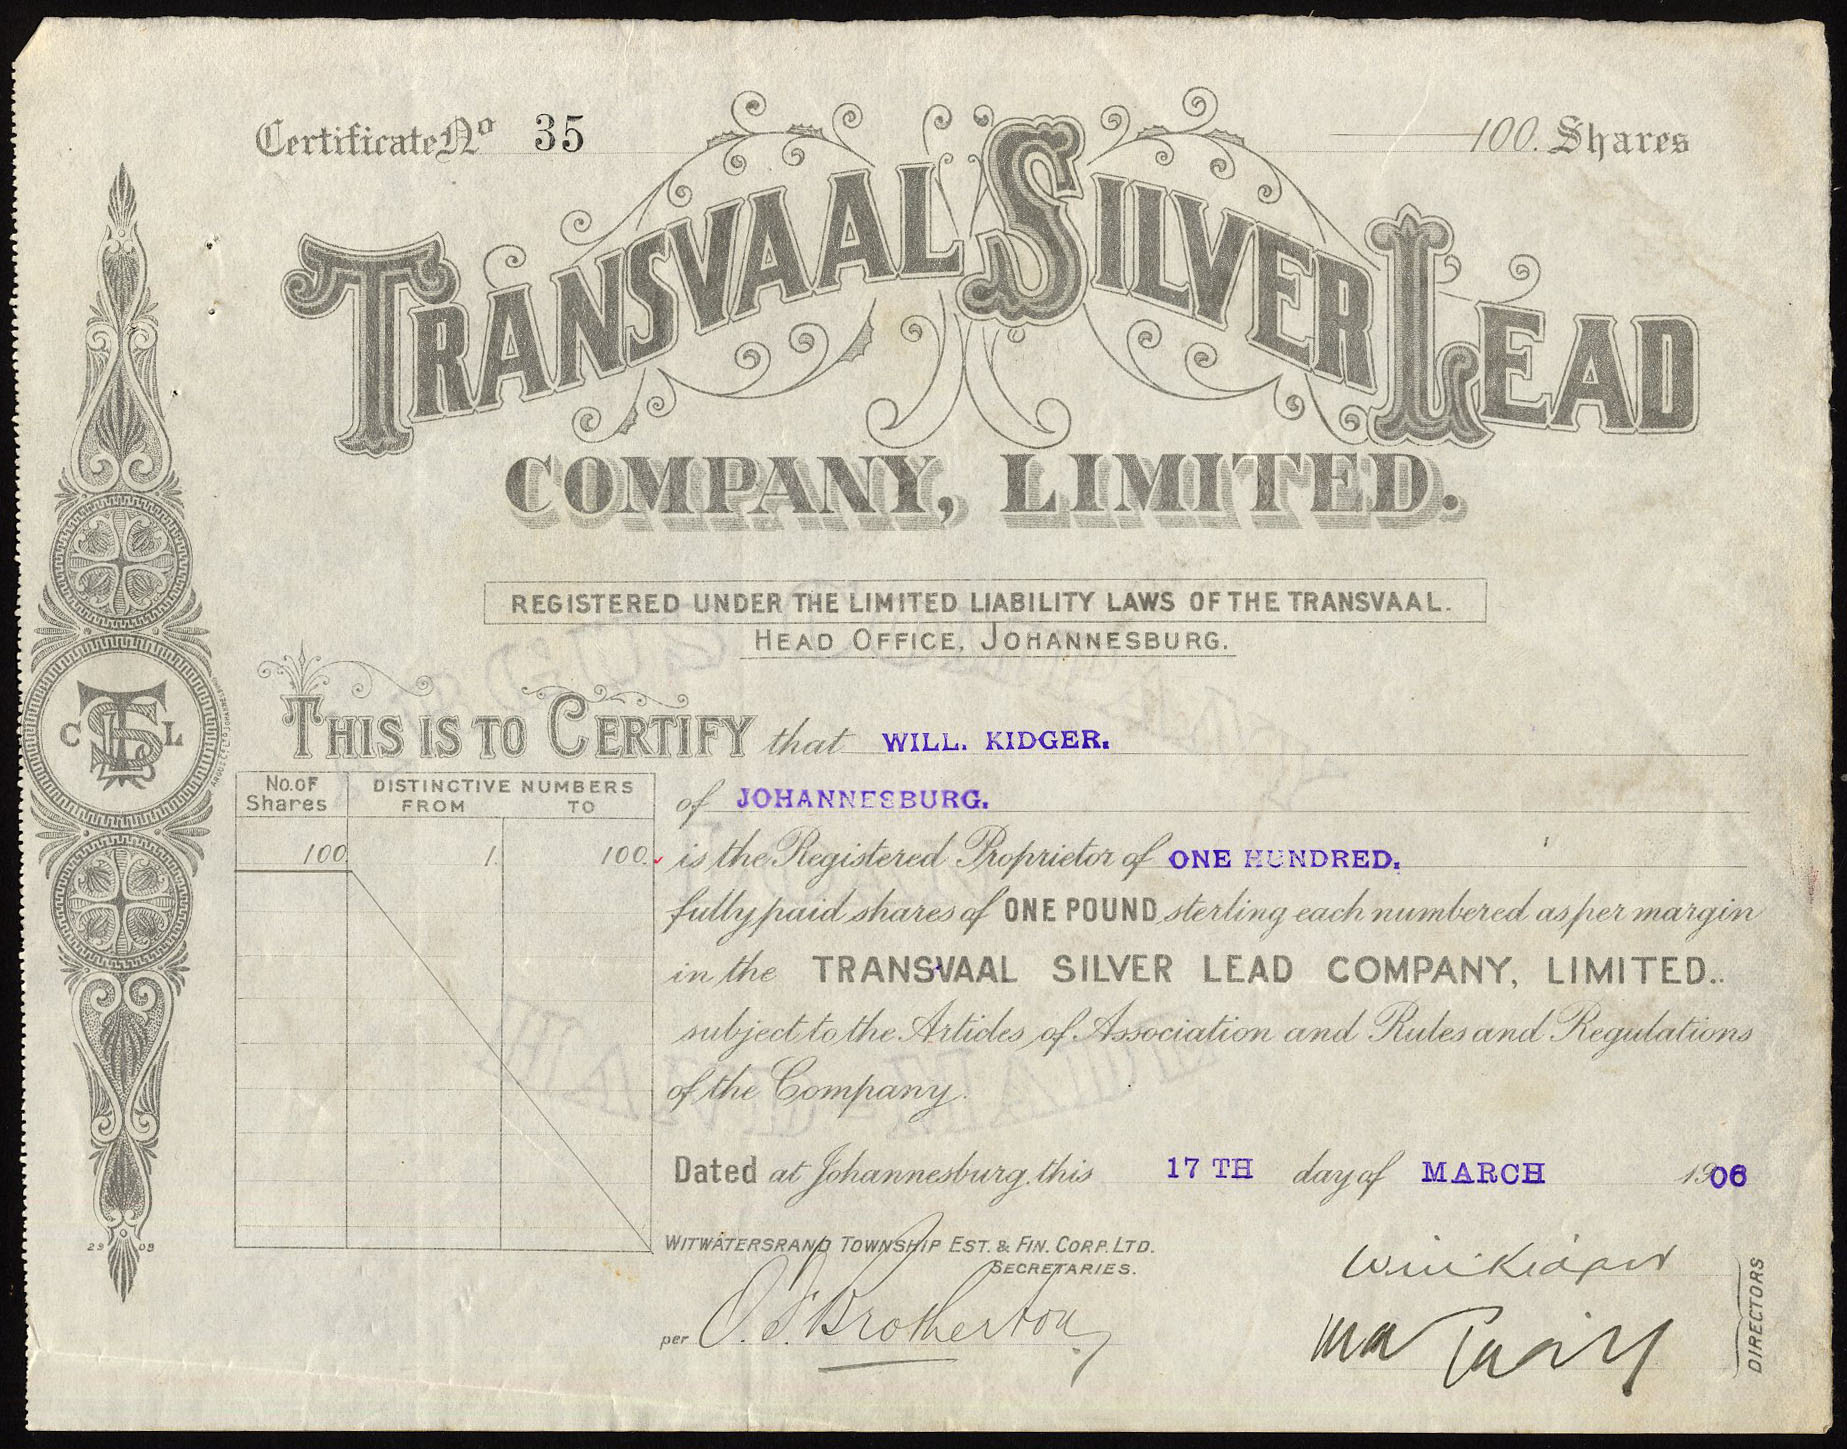 Certificate No 35 100. Shares
TRANSVAAL SILVER LEAD
COMPANY, LIMITED.
REGISTERED UNDER THE LIMITED LIABILITY LAWS OF THE TRANSVAAL.
HEAD OFFICE, JOHANNESBURG.
THIS IS TO CERTIFY that WILL. KIDGER.
C TSL L
No. OF Shares DISTINCTIVE NUMBERS FROM TO
of JOHANNESBURG.
100 1. 100. is the Registered Proprietor of ONE HUNDRED.
fully paid shares of ONE POUND sterling each numbered as per margin
in the TRANSVAAL SILVER LEAD COMPANY, LIMITED..
subject to the Articles of Association and Rules and Regulations
of the Company.
Dated at Johannesburg, this 17 TH day of MARCH 1906
WITWATERSRAND TOWNSHIP EST. & FIN. CORP. LTD.
SECRETARIES.
2909
Will Kidger
per Brotherton
DIRECTORS